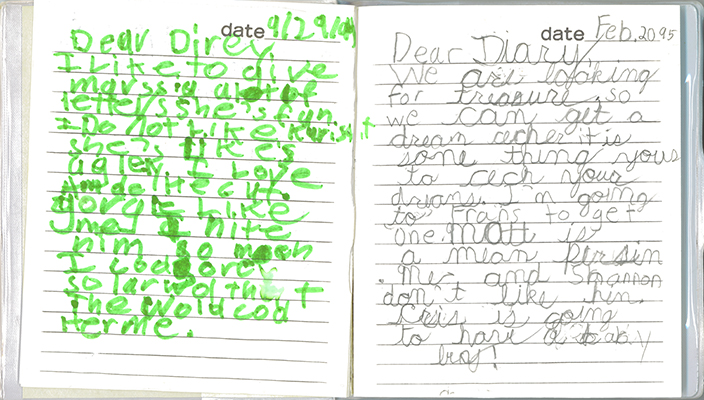 date 9/29/94
Dear Direy,
I Like to give
marssa alot of
letters she's fun
I Do not Like
she's Like's
ugley I Love
George I Like
him so moch
I cod orey
so larwd tha t
The wold cod
Herme.
date Feb. 20 95
Dear Diary,
We are looking
for treasure, so
we can get a
dream cecher it is
some thing yous
to cech your
dreams. I'm going
to Frans to get
one. Matt is
a mean persin
Me and Shannon
don't like him.
Cris is going
to have a baby
boy!